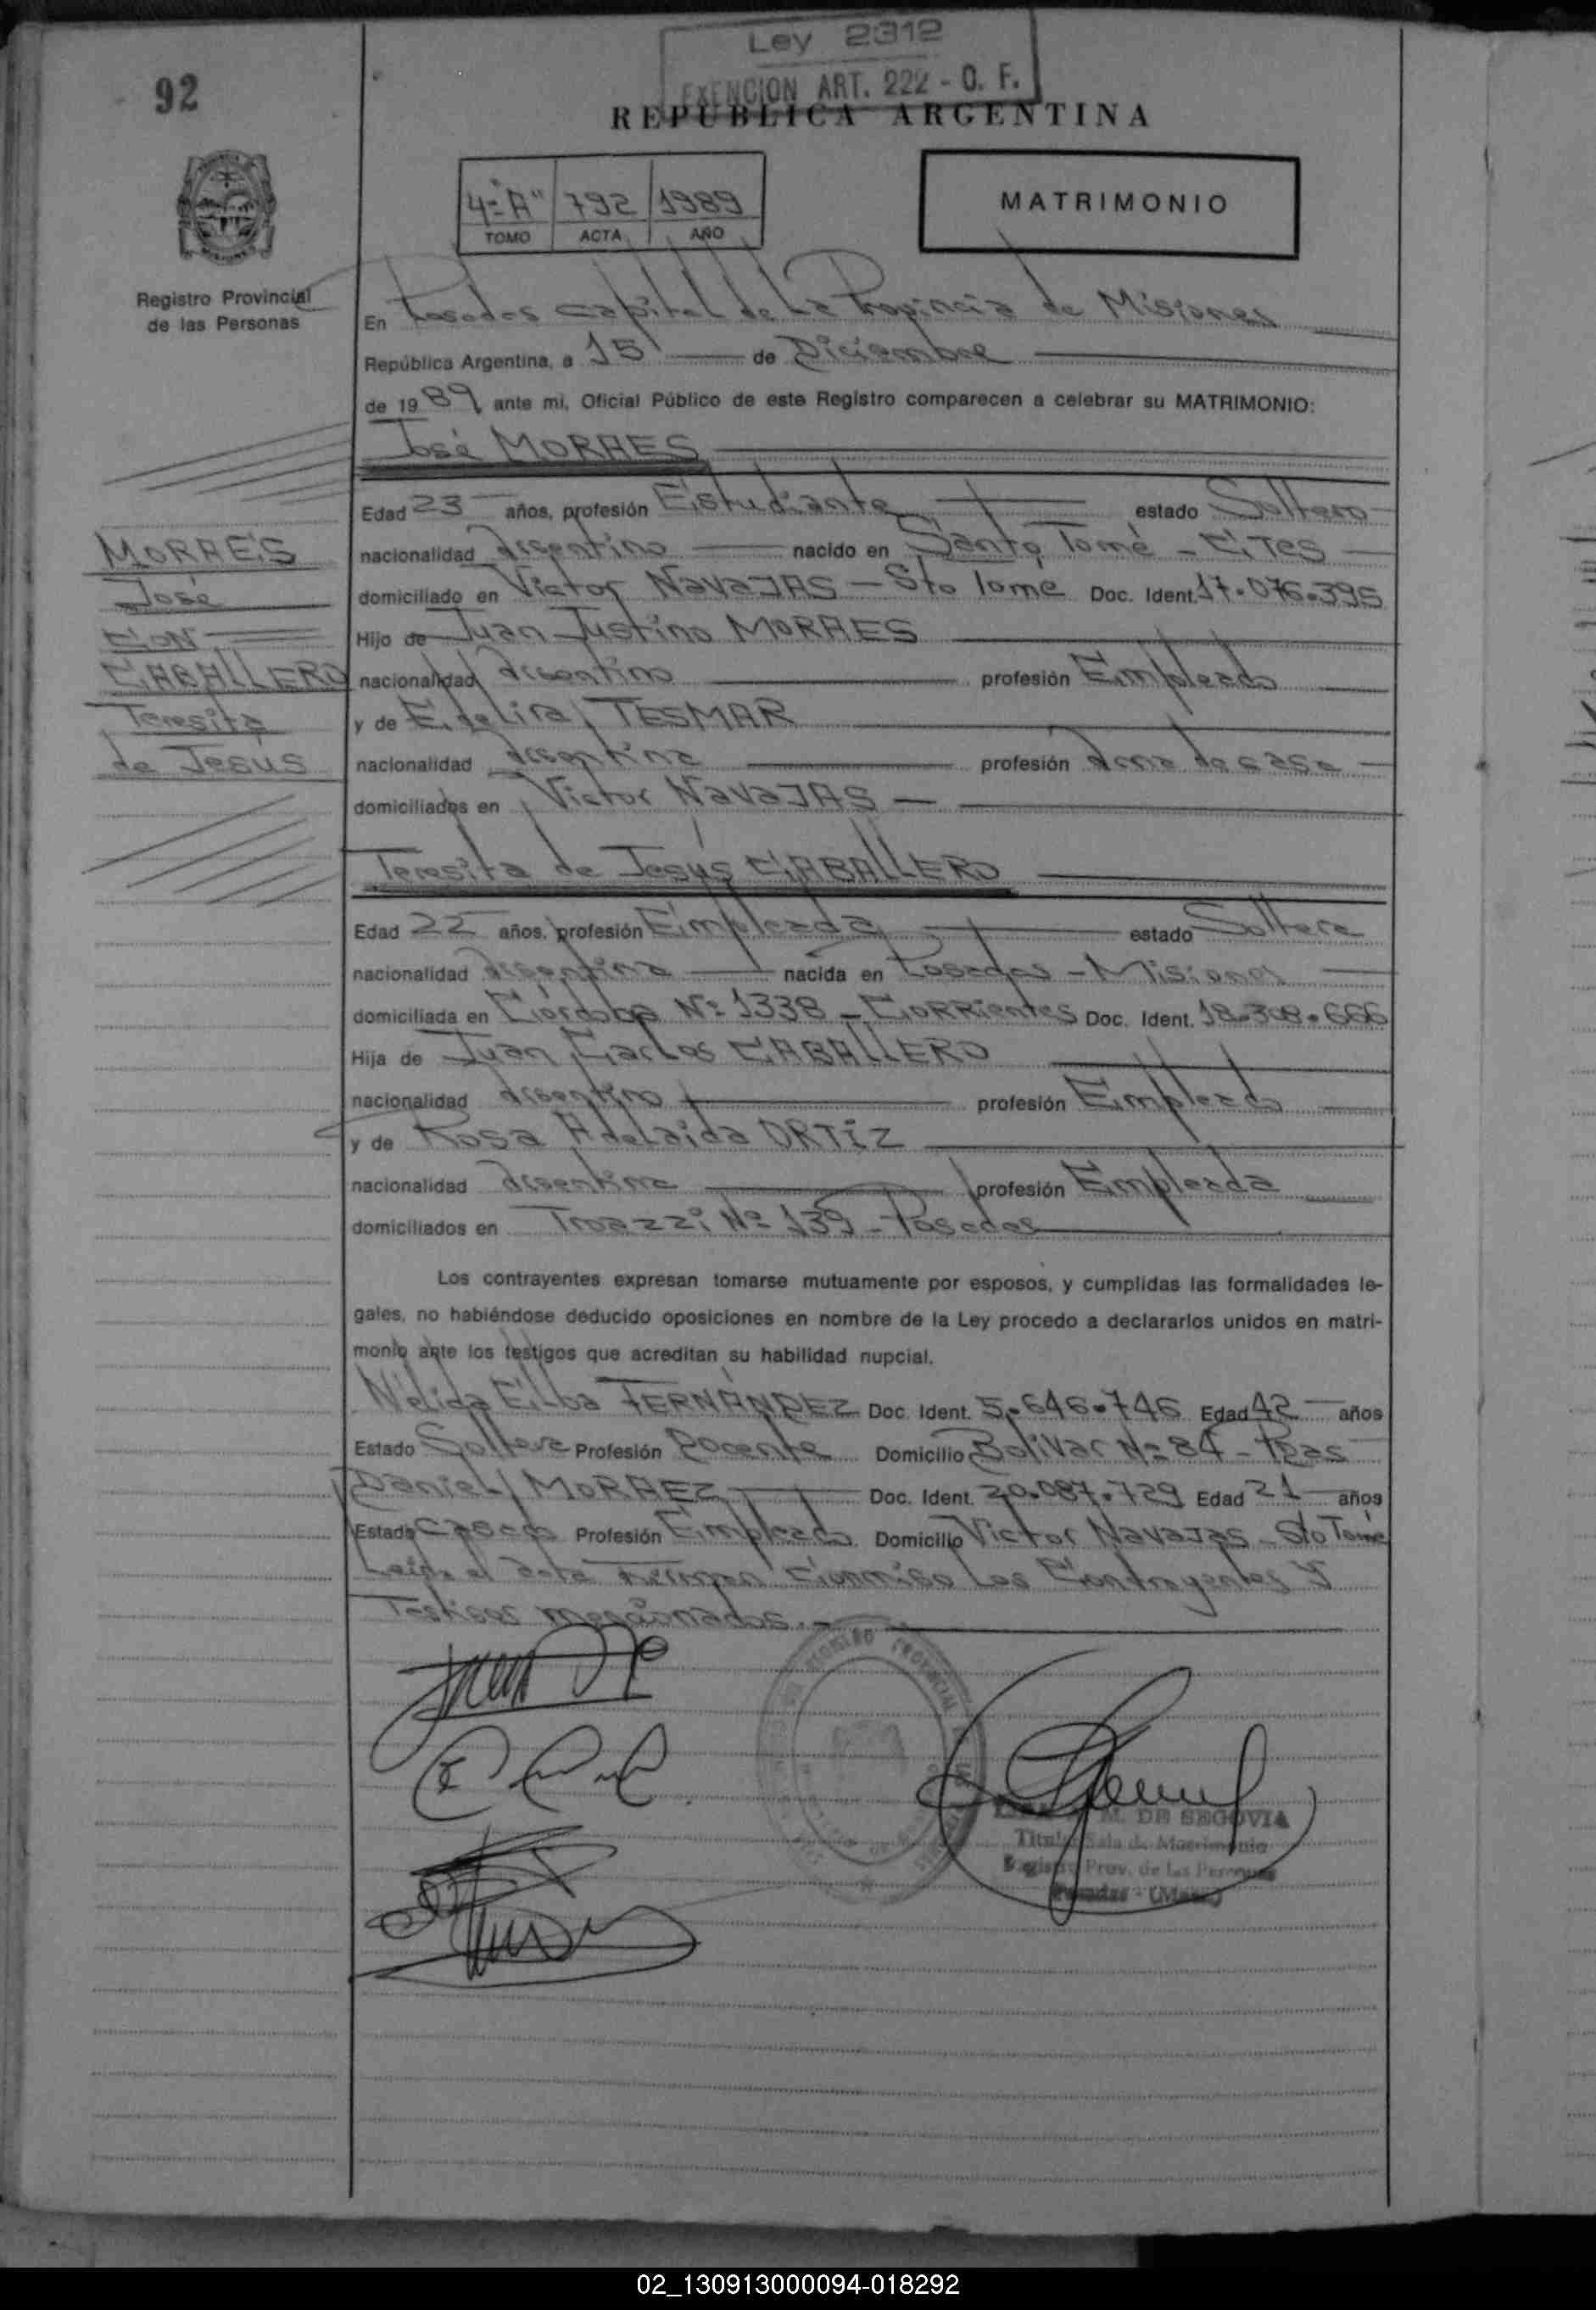 92
Ley 2312
EXENCION ART. 222 - O. F.
REPUBLICA ARGENTINA
4º "A" 792 1989
TOMO ACTA AÑO
MATRIMONIO
Registro Provincial
de las Personas
En Posadas Capital de La Provincia de Misiones
República Argentina, a 15 de Diciembre
de 1989 ante mí, Oficial Público de este Registro comparecen a celebrar su MATRIMONIO:
José MORAES
Edad 23 años, profesión Estudiante estado Soltero
nacionalidad Argentino nacido en Santo Tomé - CTES
domiciliado en Victor NavaJAS - Sto Tomé Doc. Ident. 17.076.395
Hijo de Juan Justino MORAES
nacionalidad Argentino profesión Empleado
y de Edelira TESMAR
nacionalidad Argentina profesión Ama de casa
domiciliados en Victor NavaJAS -
MORAES
José
CON
CABALLERO
Teresita
de Jesús
Teresita de Jesús CABALLERO
Edad 22 años, profesión Empleada estado Soltera
nacionalidad Argentina nacida en Posadas - Misiones
domiciliada en Córdoba Nº 1338 - CORRientes Doc. Ident. 18.308.666
Hija de Juan Carlos CABALLERO
nacionalidad Argentino profesión Empleado
y de Rosa Adelaida ORTIZ
nacionalidad Argentina profesión Empleada
domiciliados en Nº 139 - Posadas
Los contrayentes expresan tomarse mutuamente por esposos, y cumplidas las formalidades le-
gales, no habiéndose deducido oposiciones en nombre de la Ley procedo a declararlos unidos en matri-
monio ante los testigos que acreditan su habilidad nupcial.
Nélida Elba FERNÁNDEZ Doc. Ident. 5.646.746 Edad 42 años
Estado Soltera Profesión Docente Domicilio Bolivar Nº 84 - Pdas
Daniel MORAEZ Doc. Ident. 20.087.729 Edad 21 años
Estado Casado Profesión Empleado Domicilio Victor NavaJas - Sto Tomé
Leida el Acta Firman Conmigo Los Contrayentes Y
Testigos mencionados.-
M. DE SEGOVIA
Titular Sala de Matrimonio
Registro Prov. de las Personas
Posadas - (Mnes.)
02_130913000094-018292